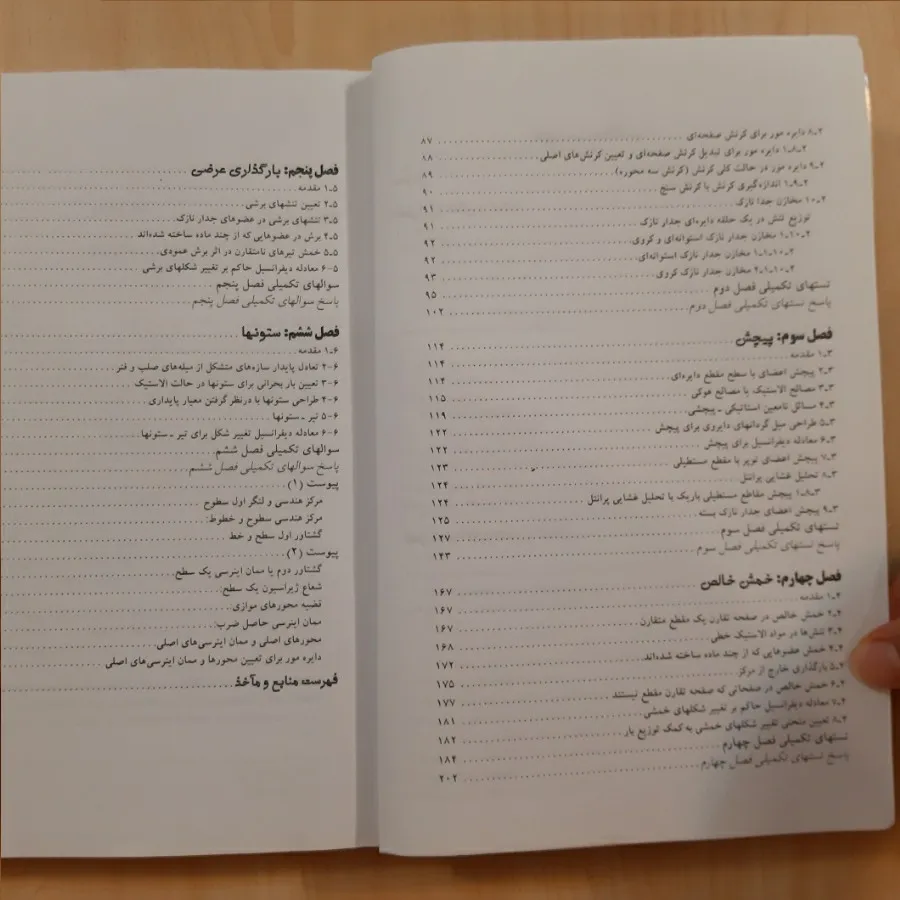 ۲ـ۸ دایره مور برای کرنش صفحه‌ای ۸۷
۲ـ۸ـ۱ دایره مور برای تبدیل کرنش صفحه‌ای و تعیین کرنش‌های اصلی ۸۸
۲ـ۹ دایره مور در حالت کلی کرنش (کرنش سه محوره) ۸۹
۲ـ۹ـ۱ اندازه‌گیری کرنش با کرنش سنج ۹۰
۲ـ۱۰ مخازن جدا نازک ۹۱
توزیع تنش در یک حلقه دایره‌ای جدار نازک ۹۱
۲ـ۱۰ـ۱ مخازن جدار نازک استوانه‌ای و کروی ۹۲
۲ـ۱۰ـ۱ـ۱ مخازن جدار نازک استوانه‌ای ۹۲
۲ـ۱۰ـ۱ـ۲ مخازن جدار نازک کروی ۹۳
تستهای تکمیلی فصل دوم ۹۵
پاسخ تستهای تکمیلی فصل دوم ۱۰۲
فصل سوم: پیچش ۱۱۴
۳ـ۱ مقدمه ۱۱۴
۳ـ۲ پیچش اعضای با سطح مقطع دایره‌ای ۱۱۴
۳ـ۳ مصالح الاستیک یا مصالح هوکی ۱۱۵
۳ـ۴ مسائل نامعین استاتیکی ـ پیچشی ۱۱۹
۳ـ۵ طراحی میل گردانهای دایروی برای پیچش ۱۲۲
۳ـ۶ معادله دیفرانسیل برای پیچش ۱۲۲
۳ـ۷ پیچش اعضای توپر با مقطع مستطیلی ۱۲۳
۳ـ۸ تحلیل غشایی پرانتل ۱۲۴
۳ـ۸ـ۱ پیچش مقاطع مستطیلی باریک با تحلیل غشایی پرانتل ۱۲۴
۳ـ۹ پیچش اعضای جدار نازک بسته ۱۲۵
تستهای تکمیلی فصل سوم ۱۲۷
پاسخ تستهای تکمیلی فصل سوم ۱۴۳
فصل چهارم: خمش خالص ۱۶۷
۴ـ۱ مقدمه ۱۶۷
۴ـ۲ خمش خالص در صفحه تقارن یک مقطع متقارن ۱۶۷
۴ـ۳ تنش‌ها در مواد الاستیک خطی ۱۶۸
۴ـ۴ خمش عضوهایی که از چند ماده ساخته شده‌اند ۱۷۲
۴ـ۵ بارگذاری خارج از مرکز ۱۷۵
۴ـ۶ خمش خالص در صفحاتی که صفحه تقارن مقطع نیستند ۱۷۷
۴ـ۷ معادله دیفرانسیل حاکم بر تغییر شکلهای خمشی ۱۸۱
۴ـ۸ تعیین منحنی تغییر شکلهای خمشی به کمک توزیع بار ۱۸۲
تستهای تکمیلی فصل چهارم ۱۸۴
پاسخ تستهای تکمیلی فصل چهارم ۲۰۲
فصل پنجم: بارگذاری عرضی
۵ـ۱ مقدمه
۵ـ۲ تعیین تنشهای برشی
۵ـ۳ تنشهای برشی در عضوهای جدار نازک
۵ـ۴ برش در عضوهایی که از چند ماده ساخته شده‌اند
۵ـ۵ خمش تیرهای نامتقارن در اثر برش عمودی
۵ـ۶ معادله دیفرانسیل حاکم بر تغییر شکلهای برشی
سوالهای تکمیلی فصل پنجم
پاسخ سوالهای تکمیلی فصل پنجم
فصل ششم: ستونها
۶ـ۱ مقدمه
۶ـ۲ تعادل پایدار سازه‌های متشکل از میله‌های صلب و فنر
۶ـ۳ تعیین بار بحرانی برای ستونها در حالت الاستیک
۶ـ۴ طراحی ستونها با درنظر گرفتن معیار پایداری
۶ـ۵ تیر ـ ستونها
۶ـ۶ معادله دیفرانسیل تغییر شکل برای تیر ـ ستونها
سوالهای تکمیلی فصل ششم
پاسخ سوالهای تکمیلی فصل ششم
پیوست (۱)
مرکز هندسی و لنگر اول سطوح
مرکز هندسی سطوح و خطوط:
گشتاور اول سطح و خط
پیوست (۲)
گشتاور دوم یا ممان اینرسی یک سطح:
شعاع ژیراسیون یک سطح:
قضیه محورهای موازی:
ممان اینرسی حاصل ضرب:
محورهای اصلی و ممان اینرسی‌های اصلی:
دایره مور برای تعیین محورها و ممان اینرسی‌های اصلی
فهرست منابع و مآخذ